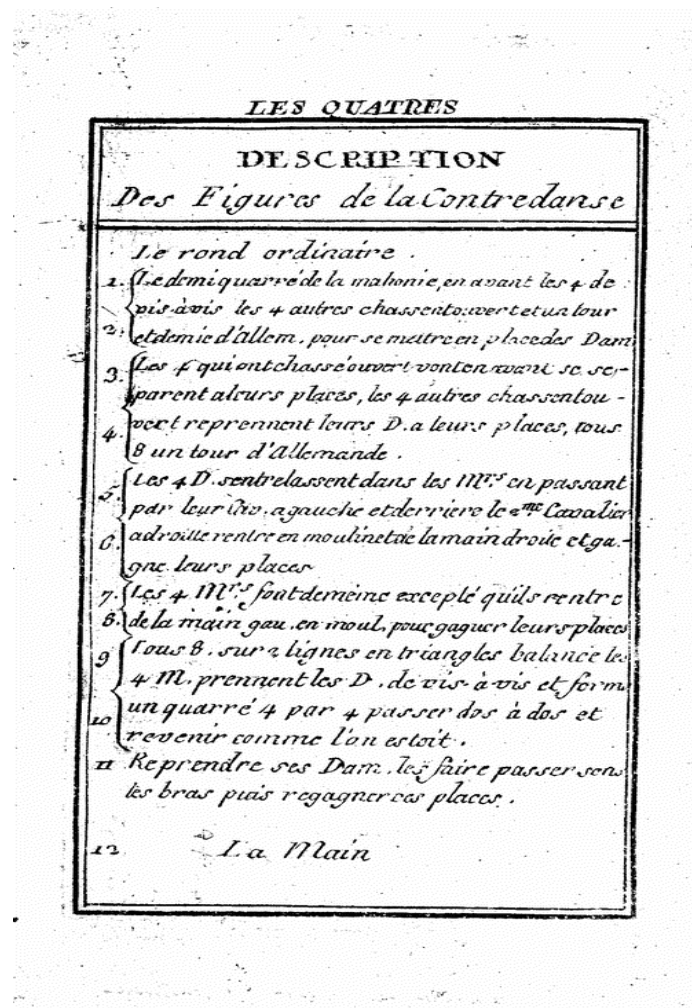 LES QUATRES
DESCRIPTION
Des Figures de la Contredanse
Le rond ordinaire.
1. Le demi quarré de la mahonie, en avant les 4 de
vis à vis les 4 autres chassent ouvert et un tour
2. et demie d'Allem. pour se mettre en place des Dam
3. Les 4 qui ont chassé ouvert vont en avant se se-
parent a leurs places, les 4 autres chassent ou-
4. vert reprennent leurs D. a leurs places, tous
8 un tour d'Allemande.
5. Les 4 D. sentrelassent dans les Mrs. en passant
par leur a gauche et derriere le 2me Cavalier
6. a droitte rentre en moulinet de la main droite et ga-
gne leurs places
7. Les 4 Mrs. font de meine excepté quils rentre
8. de la main gau. en moul. pour gagner leurs places
9 Tous 8. sur 2 lignes en triangles balance les
4 M. prennent les D. de vis à vis et forme
10 un quarré 4 par 4 passer dos à dos et
revenir comme l'on estoit.
11 Reprendre ses Dam. les faire passer sous
les bras puis regagner ces places.
12 La Main